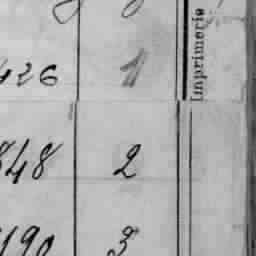 426 1
848 2
190 3
Imprimeris